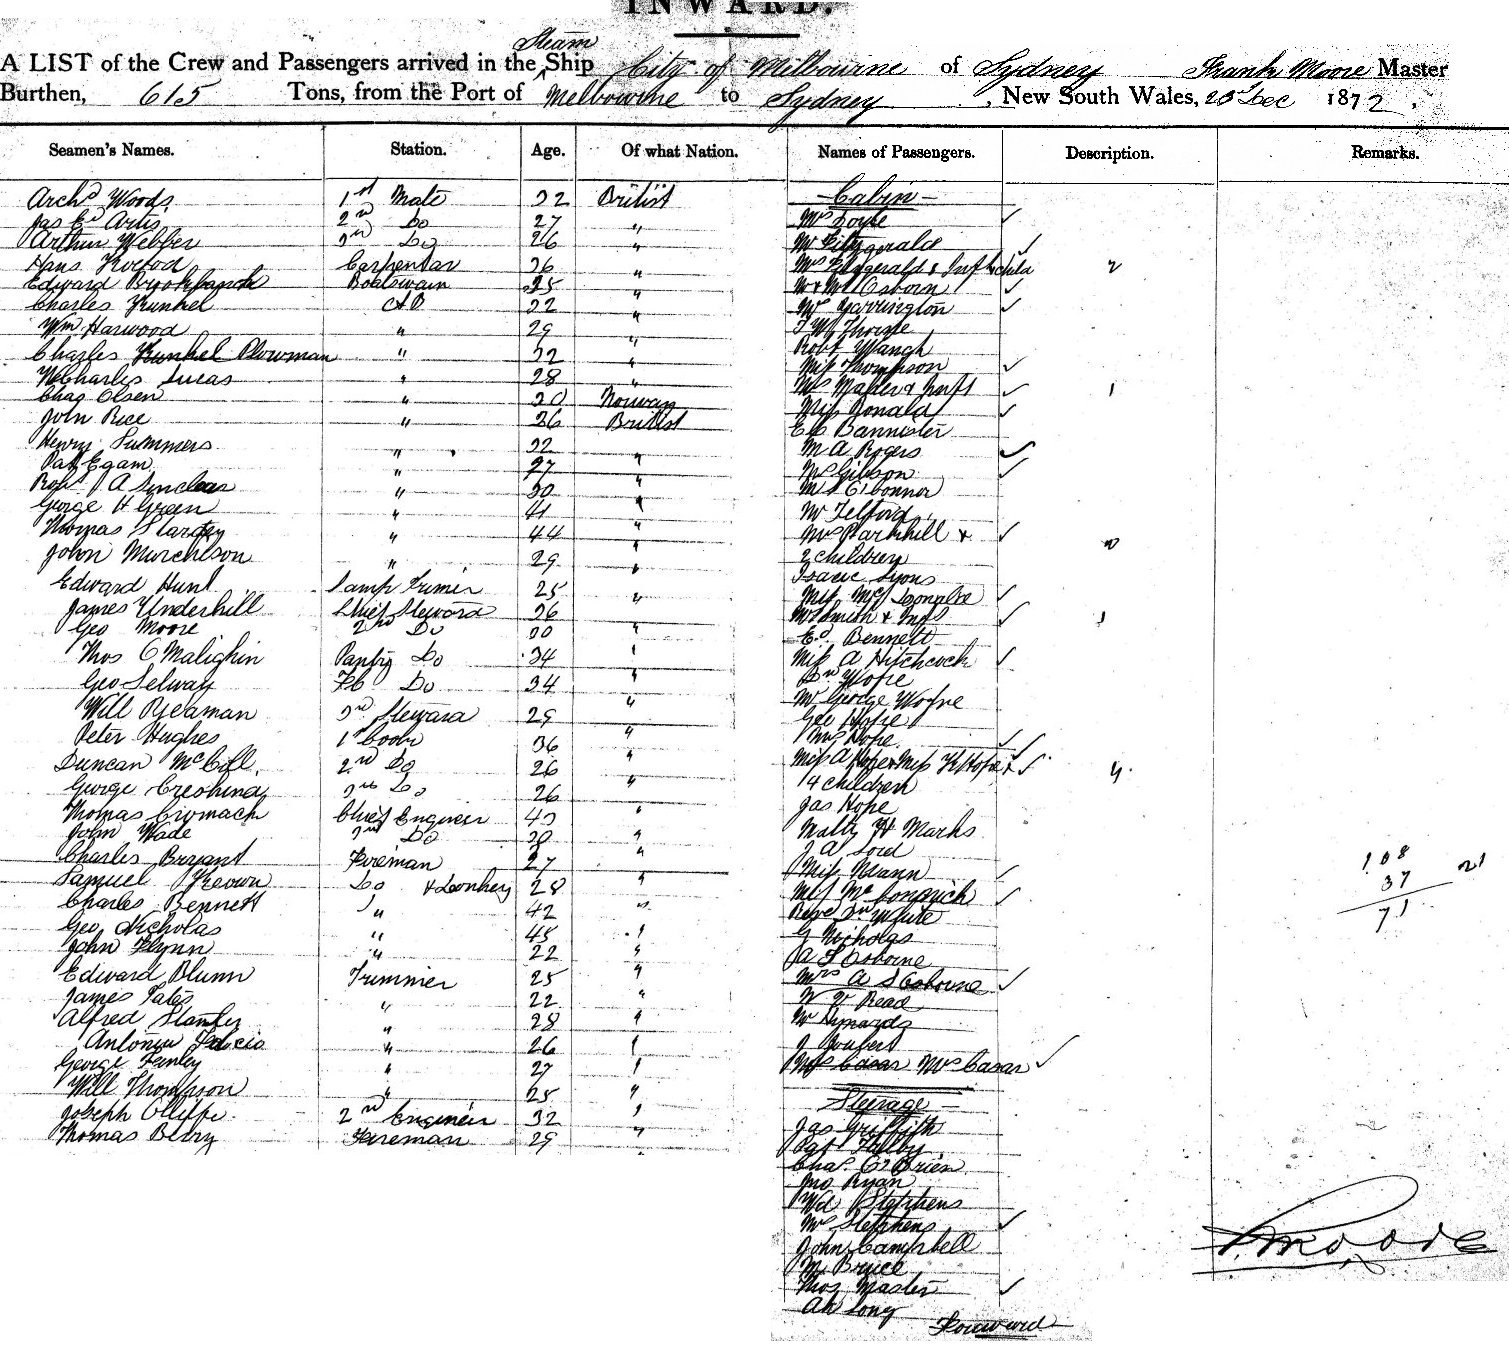 INWARD.
Steam
A LIST of the Crew and Passengers arrived in the Ship City of Melbourne of Sydney Frank Moore Master
Burthen, 615 Tons, from the Port of Melbourne to Sydney, New South Wales, 25 Dec 1872.
Seamen's Names. Station. Age. Of what Nation. Names of Passengers. Description. Remarks.
Archd Woods 1st Mate 32 British
Jas Ed Artis 2nd Do 27 "
Arthur Webber 3rd Do 26 "
Hans Carpenter 36 "
Edward Brookbanck Boatswain 35 "
Charles Kunkel AB 32 "
Wm Harwood " 29 "
Charles Kunkel Plowman " 32 "
Charles Lucas " 28 "
Chas Olsen " 30 Norway
John Rice " 26 British
Henry Summers " 32
Pat Egam " 27 "
Robt A Sinclear " 30 "
George H Green " 41 "
Thomas " 44 "
John Murchison " 29 "
Edward Hunt Lamp Trimer 25 "
James Underhill Chief Steward 36
Geo Moore 2nd Do 30 "
Thos O Malighin Pantry Do 34 "
Geo Selway Do 34 "
Will Yeaman 3rd Steward 29 "
Peter Hughes 1st Cook 36 "
Duncan McColl. 2nd Do 26 "
George 3rd Do 26 "
Thomas Cromack Chief Engineer 43 "
John Wade 3rd Do 30 "
Charles Bryant Foreman 27 "
Samuel Do & Donkey 28 "
Charles Bennett " 42 "
Geo Nicholas " 45 "
John Flynn " 22 "
Edward Blunn Trimmer 25 "
James Tates " 22 "
Alfred Stanley " 28 "
Antonia " 26 "
George Fenley " 27 "
Will Thompson " 25 "
Joseph 2nd Engineer 32 "
Thomas Berry Fireman 29 "
Cabin
Mrs Doyle
Mr Fitzgerald
Mrs Fitzgerald & Inft & child 2
Mr & Mrs Osborn
Mr Yarrington
T W Thorpe
Robt Waugh
Miss Thompson
Mrs & Inft 1
Miss Donald
Bannister
M A Rogers
Mrs Gibson
M O'Connor
Mr Telford
Mrs Parkhill &
2 children
Isaac Lyons
Miss
Mrs Smith & Inft 1
Bennett
Miss A Hitchcock
Mr George
Geo Hope
Mrs Hope
Miss A Hope & Miss K Hope & 4
4 children
Jas Hope
H Marks
J A Lord
Miss Meann
Revd White
G Nicholas
Ja T Osborne
Mrs A S Osborne
Read
Mr Hynards
J Joubert
Mrs Casar Mrs Casar
Steerage
Jas Griffith
Pat
Chas O'Brien
Jno Ryan
Wd Stephens
Mrs Stephens
John Campbell
M Bryce
Thos Master
Ah Long
Forward
108
37 21
71
F. Moore